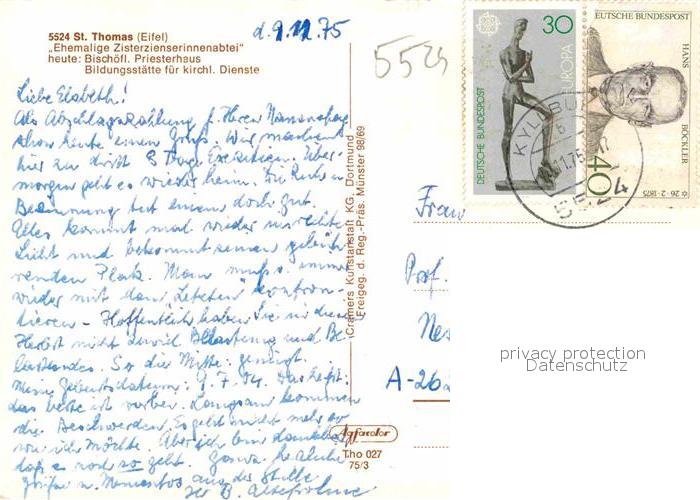 5524 St. Thomas (Eifel)
„Ehemalige Zisterzienserinnenabtei"
heute: Bischöfl. Priesterhaus
Bildungsstätte für kirchl. Dienste
d. 9.11.75
5524
Liebe Elsbeth!
Als Abschlagszahlung f. Herrn
schon heute einen Gruß. Wir machen
hier zu dritt 8 Tage Exerzitien. Über-
morgen geht es wieder heim. Die Ruhe u.
Besinnung tut einem doch gut.
Alles kommt mal wieder ins rechte
Licht und bekommt seinen gebüh-
renden Platz. Man muß s. immer
wieder mit dem Letzten konfron-
tieren - Hoffentlich haben Sie in diesem
Herbst nicht zuviel Belastung und Be-
So die Mitte: genügt.
Mein Geburtsdatum: 1.7.04. Das heißt:
das beste ist vorbei. Langsam kommen
die Beschwerden. Es geht nicht mehr so
wie ich möchte. Aber ich bin dankbar
daß es noch so geht. Ganz herzliche
Grüße u. Mementos aus der Stille
Ihr B.
Cramers Kunstanstalt KG., Dortmund
Freigeg. d. Reg.-Präs. Münster 98/69
Agfacolor
T.ho 027
75/3
30
EUROPA
DEUTSCHE BUNDESPOST
DEUTSCHE BUNDESPOST
HANS BÖCKLER
✩ 26·2·1875
40
KYLLBU
11.75
5524
Frau
Prof.
Nes
A-262
privacy protection
Datenschutz